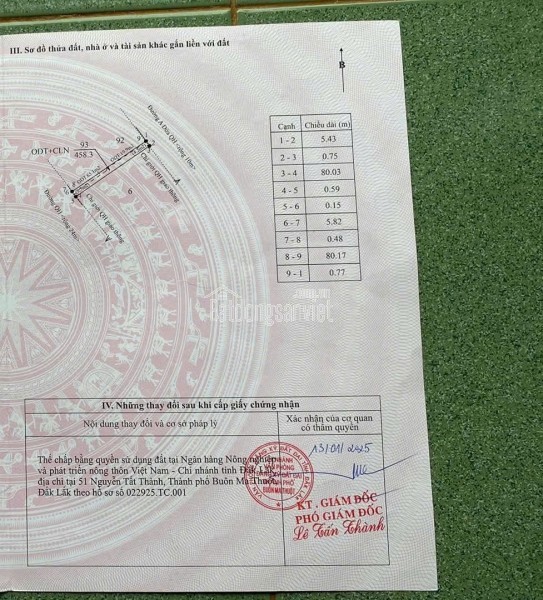 III. Sơ đồ thửa đất, nhà ở và tài sản khác gắn liền với đất
B
Đường A Dừa QH rộng 16m
ODT+CLN 93
458.3
92
9
Chỉ giới QH giao thông
6
Chỉ giới QH giao thông
Đường QH rộng 24m
Cạnh Chiều dài (m)
1 - 2 5.43
2 - 3 0.75
3 - 4 80.03
4 - 5 0.59
5 - 6 0.15
6 - 7 5.82
7 - 8 0.48
8 - 9 80.17
9 - 1 0.77
batdongsanviet
IV. Những thay đổi sau khi cấp giấy chứng nhận
Nội dung thay đổi và cơ sở pháp lý
Xác nhận của cơ quan
có thẩm quyền
Thế chấp bằng quyền sử dụng đất tại Ngân hàng Nông nghiệp
và phát triển nông thôn Việt Nam - Chi nhánh tỉnh Đắk Lắk,
địa chỉ tại 51 Nguyễn Tất Thành, Thành phố Buôn Ma Thuột,
Đắk Lắk theo hồ sơ số 022925.TC.001
13/01/2025
CHI NHÁNH
VĂN PHÒNG
ĐĂNG KÝ ĐẤT ĐAI
THÀNH PHỐ
BUÔN MA THUỘT
KT. GIÁM ĐỐC
PHÓ GIÁM ĐỐC
Lê Tấn Thành